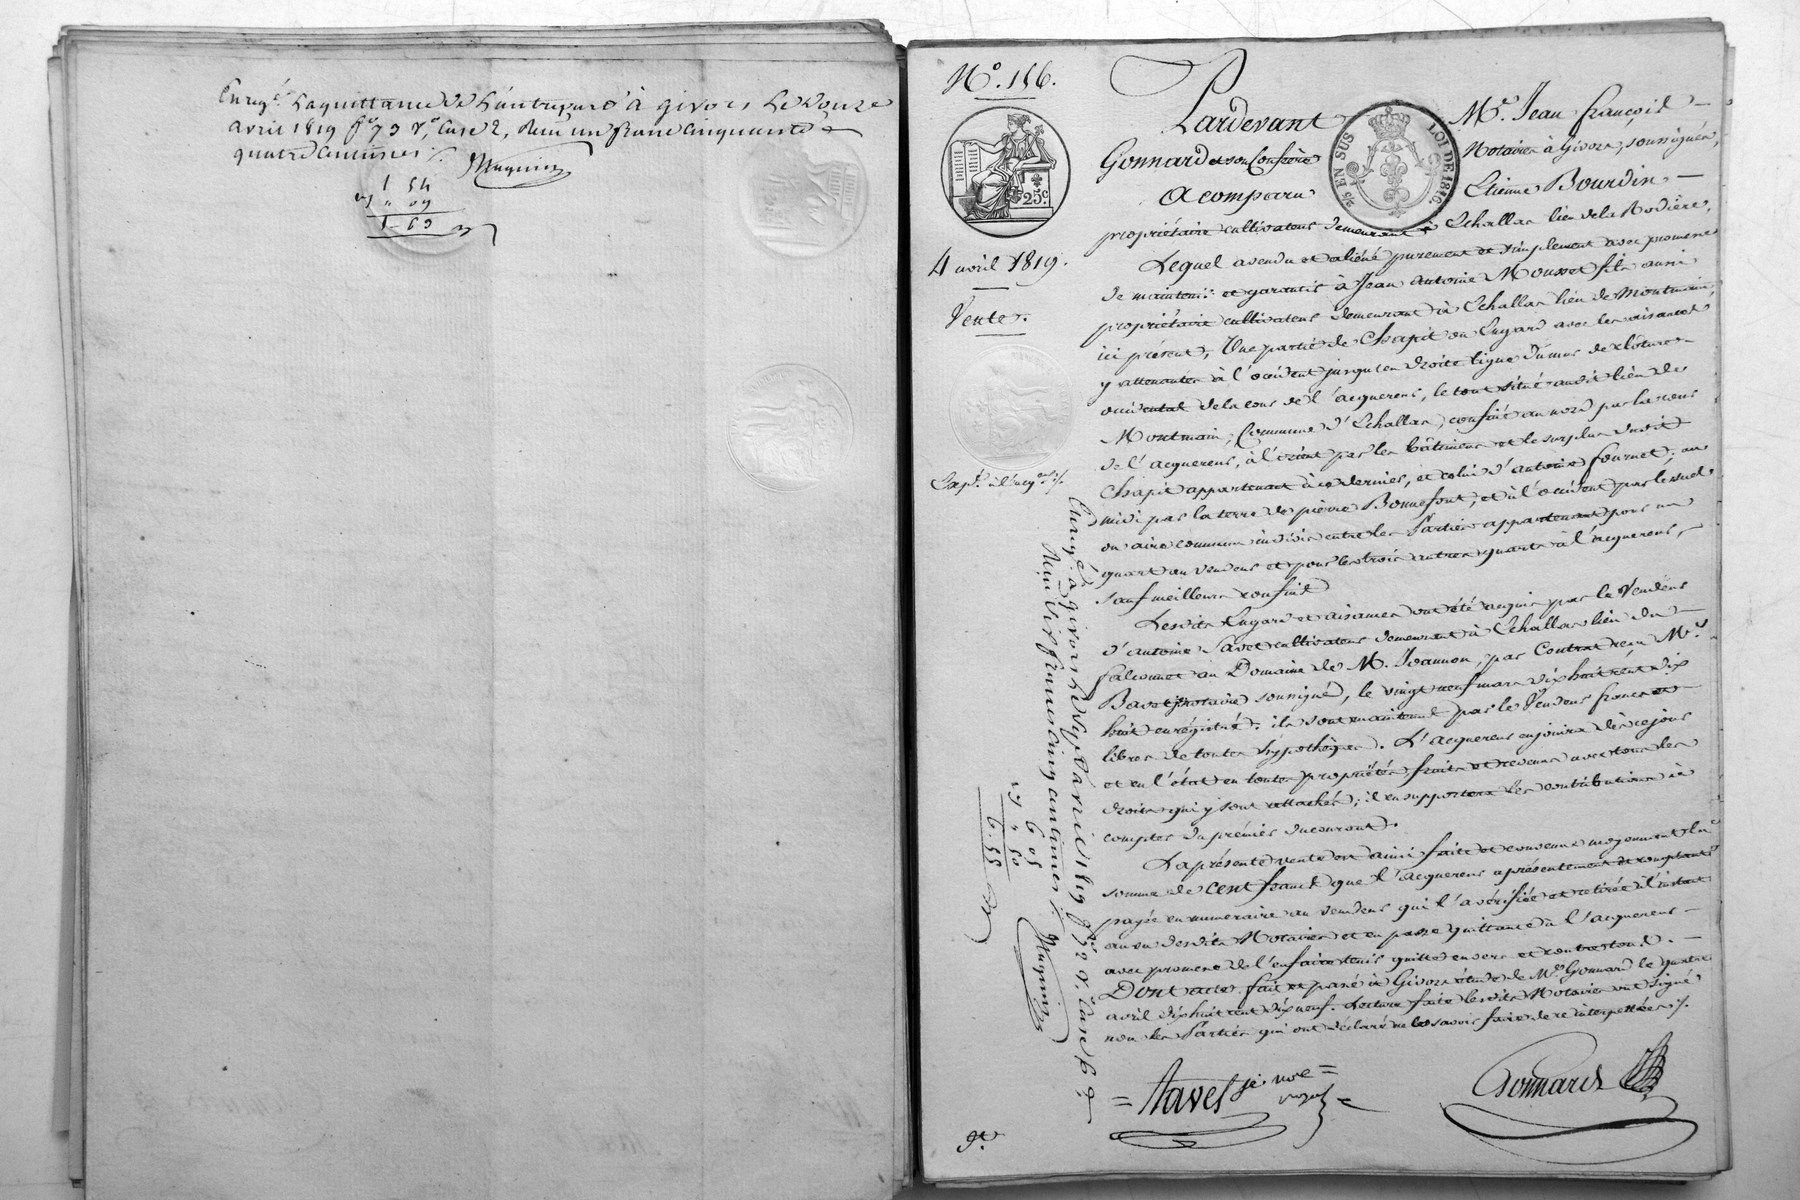 Enreg.é la quittance de l'autre part à Givors le douze
avril 1819 f.o 73 v.o case 2, Reçu un franc cinquante
quatre centimes
1 54
" 09
1 63
N.o 156.
25c.
4 avril 1819.
Vente.
Exp.
Pardevant M.e Jean François
Gonnard et son Confrère Notaires à Givors, soussignés,
A comparu Etienne Bourdin
5/6 EN SUS LOI DE 1816.
propriétaire cultivateur demeurant à Echallas lieu de la Rodière,
Lequel a vendu et aliéné purement et simplement avec promesse
de maintenir et garantir à Jean Antoine Mousset fils aussi
propriétaire cultivateur demeurant à Echallas lieu de Montmain,
ici présent, Une partie de Chapit ou Hugard avec les aisances
y attenantes à l'occident jusqu'en droite ligne du mur de clôture
occidental de la cour de l'acquereur, le tout situé audit lieu de
Montmain, Commune d'Echallas, confiné au nord par la cour
de l'acquereur, à l'orient par les bâtimens et le surplus dudit
Chapit appartenant à ce dernier, et celui d'antoine fournet; au
midi par la terre de pierre Bonnefont, et à l'occident par le suel
ou aire commun indivis entre les Parties appartenant pour un
quart au vendeur et pour les trois autres quarts à l'acquereur,
Sauf meilleurs confins
Lesdits Hugard et aisances ont été acquis par le Vendeur
d'antoine Savet cultivateur demeurant à Echallas lieu du
falconnet au Domaine de M. Jvannon, par Contrat reçu M.e
notaire soussigné, le vingt neuf mars dix huit cent dix
huit enrégistré; ils sont maintenus par le Vendeur francs et
libres de toutes hypothèques. L'acquereur en jouira dès ce jour
et en l'état en toutes propriétés, fruits et revenus avec tous les
droits qui y sont attachés; il en supportera les contributions à
compter du premier du courant.
La présente vente est ainsi faite et convenue moyennant la
somme de cent francs que l'acquereur a présentement et comptant
payée en numeraire au vendeur qui l'a vérifiée et retirée à l'instant
au vu desdits Notaires et en passe quittance à l'acquereur
avec promesse de l'en faire tenir quitte envers et contre tous.
Dont acte, fait et passé à Givors étude de M.e Gonnard le quatre
avril dix huit cent dix neuf. Lecture faite lesdits Notaires ont signé
non les Parties qui ont déclaré ne le savoir faire de ce interpellées
Enreg.é à Givors le sept avril 1819 f.o 72 v. case 6
Reçu six francs cinq centimes
6 05
" 50
6.55
Gonnard